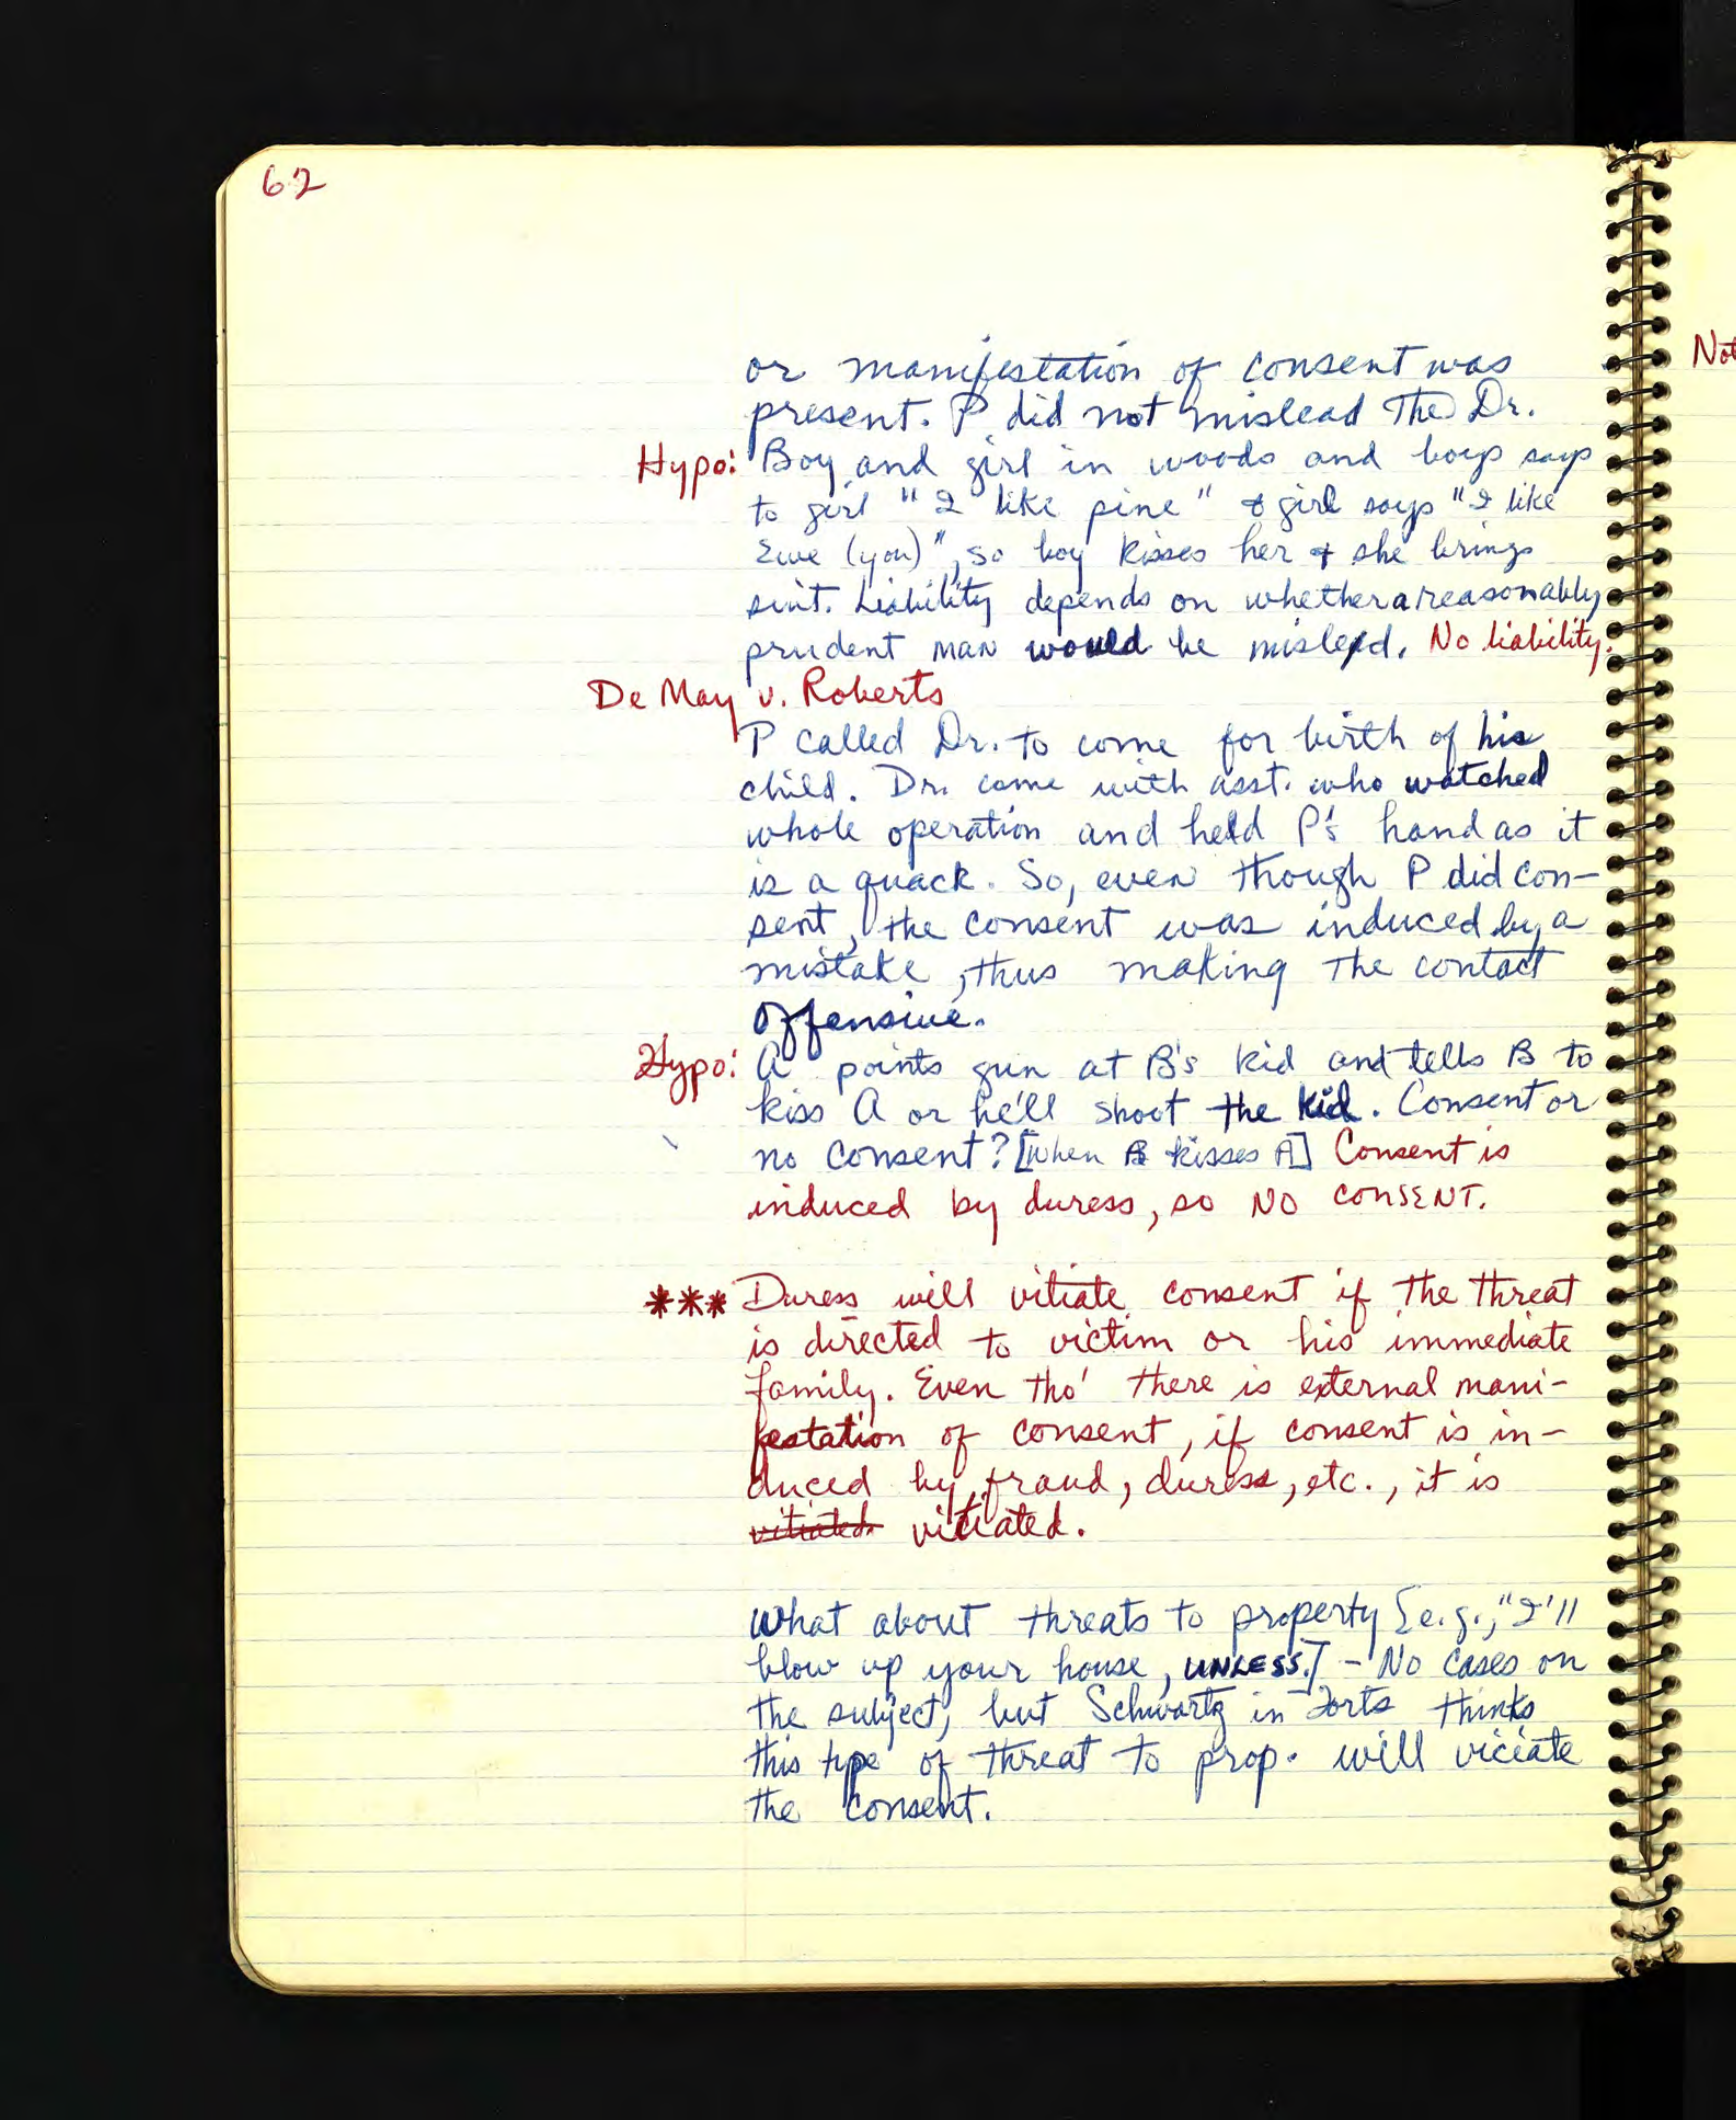 62
or manifestation of consent was
present. P did not mislead the Dr.
Hypo: Boy and girl in woods and boy says
to girl "I like pine" & girl says "I like
Ewe (you)", so boy kisses her & she brings
suit. Liability depends on whether a reasonably
prudent man would be misled. No liability.
De May v. Roberts
P called Dr. to come for birth of his
child. Dr. came with asst. who watched
whole operation and held P's hand as it
is a quack. So, even though P did con-
sent, the consent was induced by a
mistake, thus making the contact
offensive.
Hypo: A points gun at B's kid and tells B to
kiss A or he'll shoot the kid. Consent or
no consent? [When B kisses A] Consent is
induced by duress, so NO CONSENT.
*** Duress will vitiate consent if the threat
is directed to victim or his immediate
family. Even tho' there is external mani-
festation of consent, if consent is in-
duced by fraud, duress, etc., it is
vitiated. vitiated.
What about threats to property [e.g., "I'll
blow up your house, UNLESS.] - No cases on
the subject, but Schwartz in Torts thinks
this type of threat to prop. will viciate
the consent.
Not